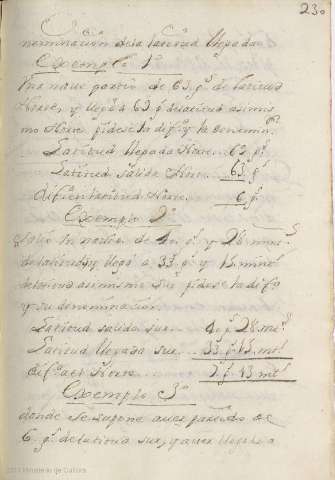 230
nominacion dela latitud llegada
Exemplo 1º
Una nave partio de 63 gˢ de latitud
Norte, y llegó a 69 g de latitud asimis
mo Norte pidese la difª y la denomin.ᵒⁿ
Latitud llegada Norte.. 69 gˢ
Latitud salida Norte.. 63 gˢ
difª en latitud Norte. 6 gˢ
Exemplo 2º
Salio Un navio de gˢ y 28 minᵗˢ
de latitud y llegó a 33 gˢ y 15 minᵗˢ
de latitud asimismo Sur pidese la difª
y su denominacion
Latitud salida sur.. gˢ 28 mᵗˢ
Latitud llegada sur... 33 gˢ 15 mᵗˢ
difª Norte.. gˢ 13 mᵗˢ
Exemplo 3º
donde se supone aver partido de
6 gˢ de latitud sur, y aver llegado a
Ministerio de Cultura